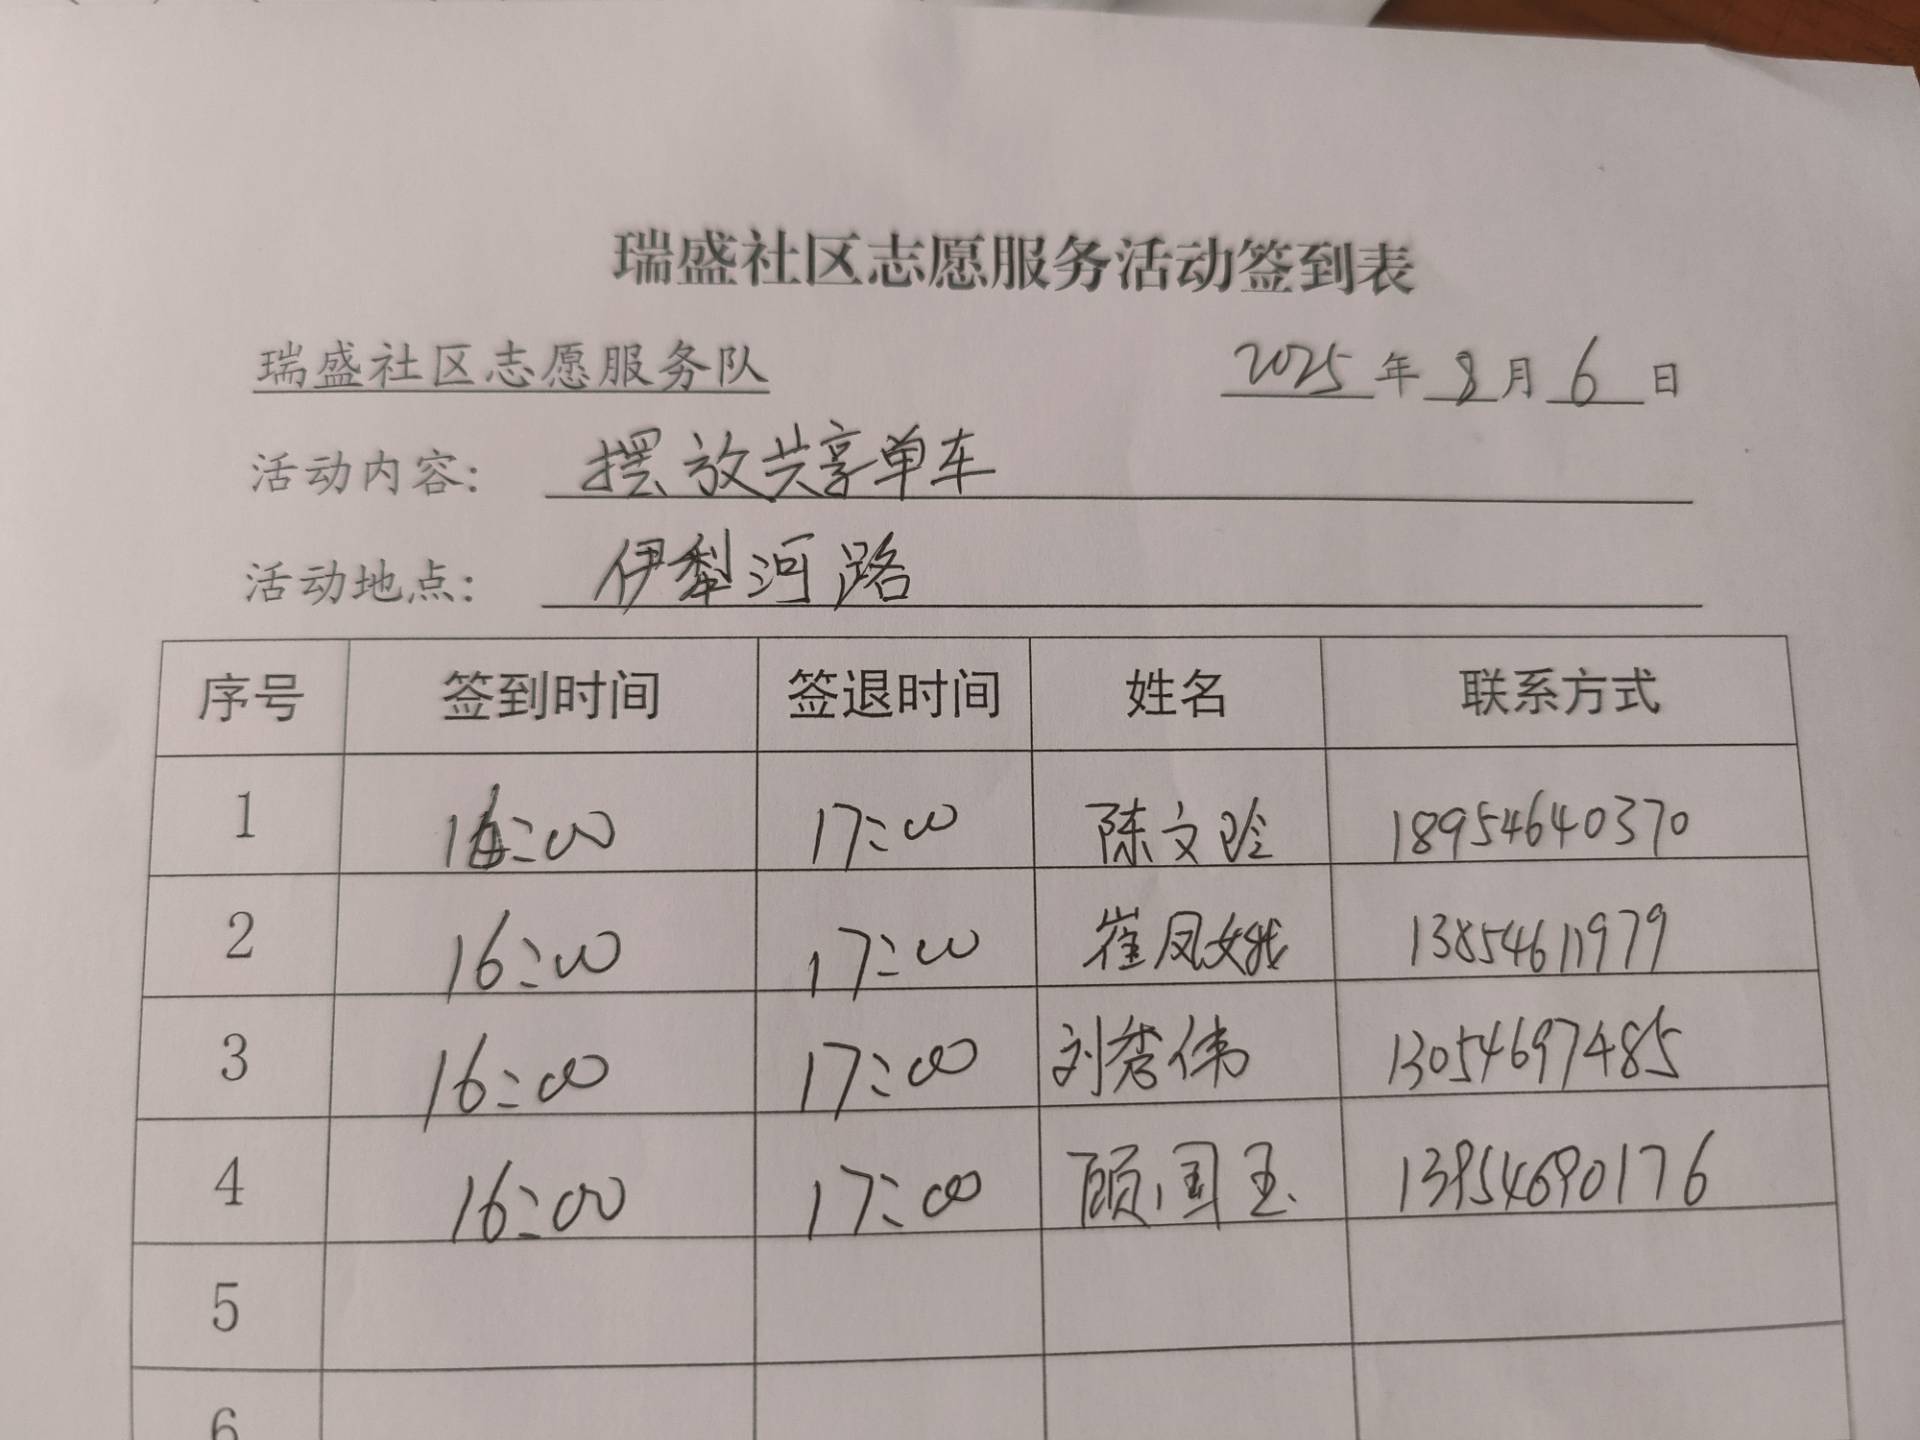 瑞盛社区志愿服务活动签到表
瑞盛社区志愿服务队 2025年8月6日
活动内容: 摆放共享单车
活动地点: 伊犁河路
序号 签到时间 签退时间 姓名 联系方式
1 16:00 17:00 陈文玲 18954640370
2 16:00 17:00 崔凤娥 13854611979
3 16:00 17:00 刘秀伟 13054697485
4 16:00 17:00 顾国玉 13954690176
5
6